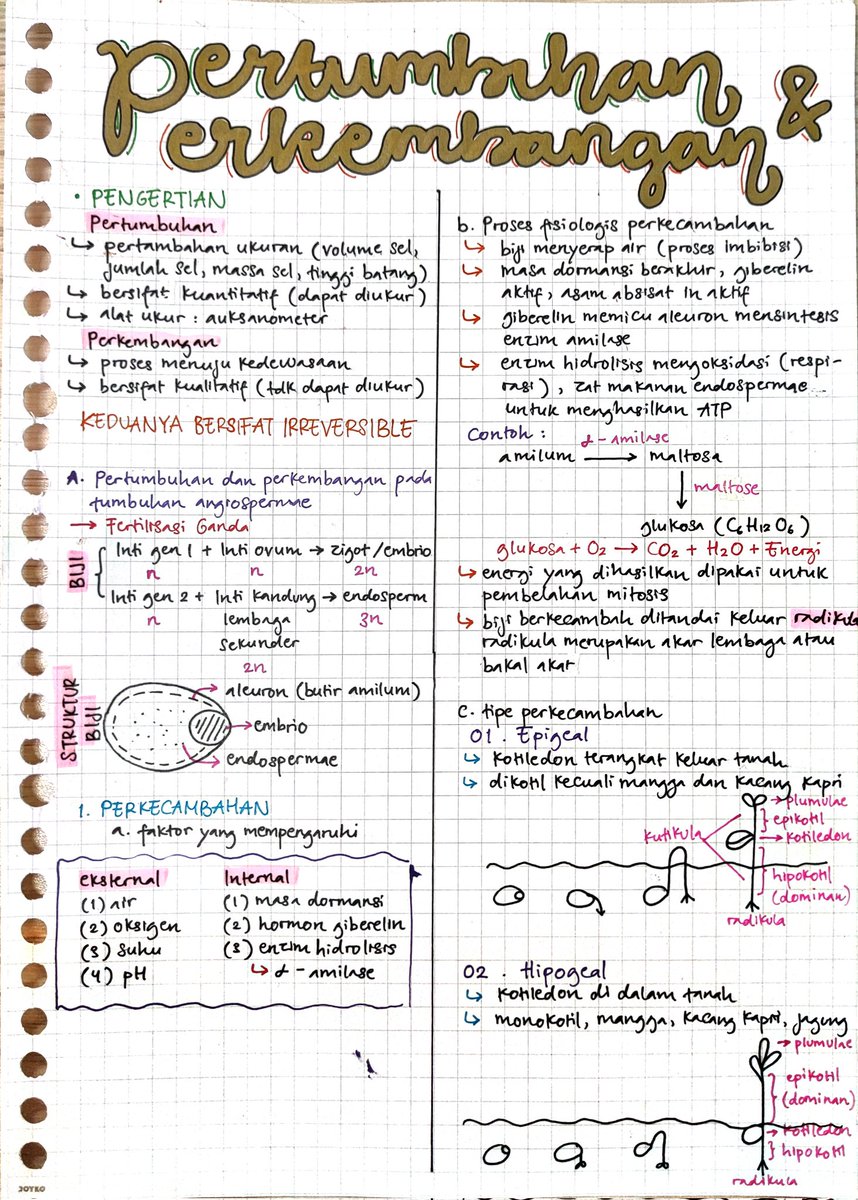 Pertumbuhan &
Perkembangan
• PENGERTIAN
Pertumbuhan
↳ pertambahan ukuran (volume sel,
jumlah sel, massa sel, tinggi batang)
↳ bersifat kuantitatif (dapat diukur)
↳ alat ukur : auksanometer
Perkembangan
↳ proses menuju kedewasaan
↳ bersifat kualitatif (tdk dapat diukur)
KEDUANYA BERSIFAT IRREVERSIBLE
A. Pertumbuhan dan perkembangan pada
tumbuhan angiospermae
→ Fertilisasi Ganda
BIJI
Inti gen 1 + Inti ovum → zigot/embrio
n n 2n
Inti gen 2 + Inti kandung → endosperm
n lembaga 3n
sekunder
2n
STRUKTUR
BIJI
aleuron (butir amilum)
embrio
endospermae
1. PERKECAMBAHAN
a. faktor yang mempengaruhi
eksternal
(1) air
(2) oksigen
(3) suhu
(4) pH
Internal
(1) masa dormansi
(2) hormon giberelin
(3) enzim hidrolisis
↳ α - amilase
b. Proses fisiologis perkecambahan
↳ biji menyerap air (proses imbibisi)
↳ masa dormansi berakhir, giberelin
aktif, asam absisat in aktif
↳ giberelin memicu aleuron mensintesis
enzim amilase
↳ enzim hidrolisis mengoksidasi (respi-
rasi), zat makanan endospermae
untuk menghasilkan ATP
Contoh :
α - amilase
amilum → maltosa
↓ maltose
glukosa (C6H12O6)
glukosa + O2 → CO2 + H2O + Energi
↳ energi yang dihasilkan dipakai untuk
pembelahan mitosis
↳ biji berkecambah ditandai keluar radikula
radikula merupakan akar lembaga atau
bakal akar
c. tipe perkecambahan
01 . Epigeal
↳ kotiledon terangkat keluar tanah
↳ dikotil kecuali mangga dan kacang kapri
→ plumulae
epikotil
→ kotiledon
kutikula
hipokotil
(dominan)
radikula
02 . Hipogeal
↳ kotiledon di dalam tanah
↳ monokotil, mangga, kacang kapri, jagung
→ plumulae
epikotil
(dominan)
→ kotiledon
hipokotil
radikula
JOYKO